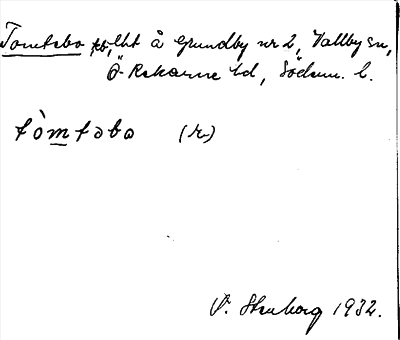 Tomtebo, lht å Grundby nr 2, Vallby sn,
Ö. Rekarne hd, Södm. l.
tòmtəbo (r)
V. Stenborg 1932.